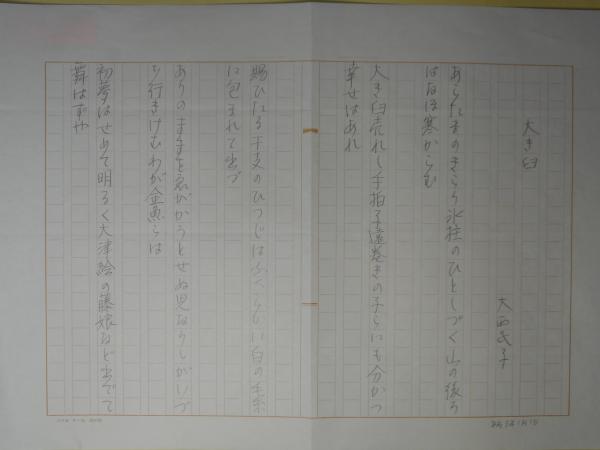 大き臼
大西民子
あらたまのきらら氷柱のひとしづく山の後ろ
はなほ寒からむ
大き臼売れし手拍子遠巻きの子らにも分かつ
幸せはあれ
賜ひたる干支のひつじはふくらかい白の毛糸
に包まれて出づ
ありのままを忌がかうとせぬ児なりしがいづ
ち行きけむわが金魚らは
初夢はせめて明るく大津絵の藤娘など出でて
舞はずや